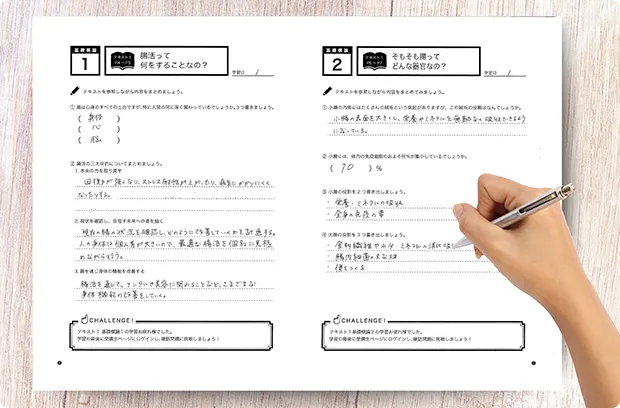 基礎概論
1
テキスト1
腸活って
何をすることなの？
学習日 /
テキストを参照しながら内容をまとめましょう。
① 腸は心身のすべての土台ですが、特に人間の何に深く関わっているでしょうか。3つ書きましょう。
( 身体 )
( 心 )
( 脳 )
② 腸活の三大目的についてまとめましょう。
1. 本来の力を取り戻す
回復力が強くなり、ストレス耐性が上がったり、病気にかかりにくく
なったりする。
2. 現状を確認し、目指す未来への道を描く
現在の腸の状況を確認し、どのように改善していくかを計画する。
人の身体は個人差が大きいので、最適な腸活を個別に見極
めながら行う。
3. 腸を通じ身体の機能を改善する
腸活を通して、メンタルや美容に関わることなど、さまざまな
身体機能の改善をしていく。
CHALLENGE!
テキスト1 基礎概論1の学習お疲れ様でした。
学習の最後に受講生ページにログインし、確認問題に挑戦しましょう！
基礎概論
2
テキスト1
そもそも腸って
どんな器官なの？
学習日 /
テキストを参照しながら内容をまとめてみましょう。
① 小腸の内側にはたくさんの絨毛という突起がありますが、この絨毛の役割はなんでしょうか。
小腸の表面を大きくし、栄養やミネラルを無駄なく吸収できるよう
になっている。
② 小腸には、体内の免疫細胞のおよそ何％が集中しているでしょうか。
( 70 ) %
③ 小腸の役割を2つ書き出しましょう。
・栄養・ミネラルの吸収
・全身の免疫の要
④ 大腸の役割を3つ書き出しましょう。
・食物繊維や水分・ミネラルの消化吸
・腸内細菌の主な畑
・便をつくる
CHALLENGE!
テキスト1 基礎概論2の学習お疲れ様でした。
学習の最後に受講生ページにログインし、確認問題に挑戦しましょう！